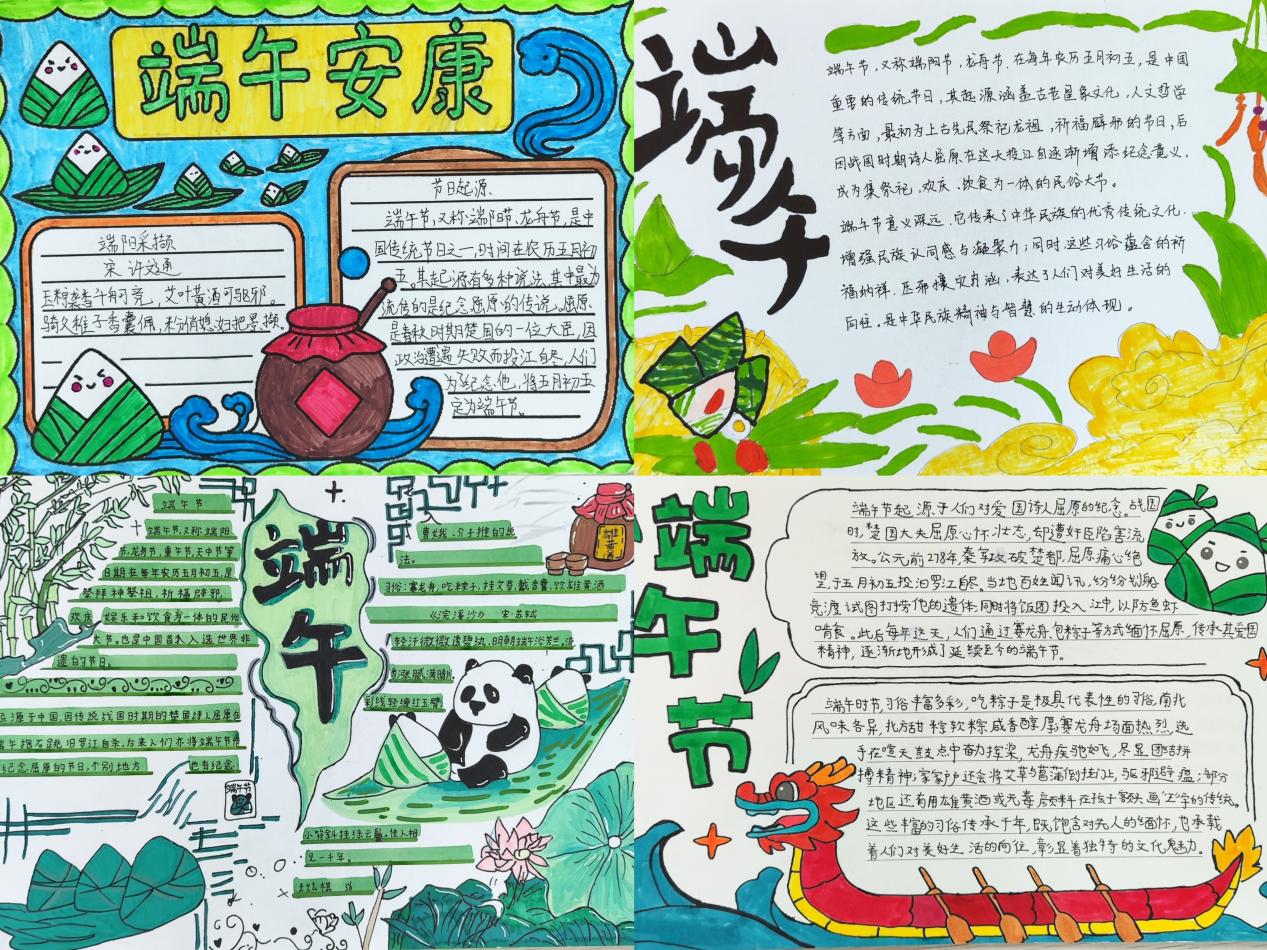 端午安康
端阳采撷
宋 许达通
玉粽袭香千舸竞，艾叶黄酒可驱邪。
骑父稚子香囊佩，粉俏媳妇把景撷。
节日起源、
端午节，又称端阳节、龙舟节，是中
国传统节日之一，时间在农历五月初
五。其起源有多种说法，其中最为
流传的是纪念屈原的传说。屈原
是春秋时期楚国的一位大臣，因
政治遭遇失败而投江自尽，人们
为了纪念他，将五月初五
定为端午节。
端午
端午节，又称端阳节，龙舟节，在每年农历五月初五，是中国
重要的传统节日，其起源涵盖古老星象文化，人文哲学
等方面，最初为上古先民祭祀龙祖，祈福辟邪的节日，后
因战国时期诗人屈原在这天投江自逐渐增添纪念意义，
成为集祭祀，欢庆、饮食为一体的民俗大节。
端午节意义深远，它传承了中华民族的优秀传统文化，
增强民族认同感与凝聚力；同时，这些习俗蕴含的祈
福纳祥、表达了人们对美好生活的
向往。是中华民族精神与智慧的生动体现。
端午
端午节
端午节，又称端阳
节、龙舟节，重午节，天中节等
日期在每年农历五月初五，是
祭拜神祭祖，祈福辟邪，
欢庆娱乐和饮食为一体的民俗
大节。也是中国首个入选世界非
遗的节日。
起源于中国，因传说战国时期的楚国诗人屈原在
端午抱石跳汨罗江自杀，后来人们亦将端午节作
纪念屈原的节日，个别地方 也有纪念
端午节
曹娥、介子推的说
法。
习俗：赛龙舟，吃粽子，挂艾草，戴香囊，饮雄黄酒
《浣溪沙》 宋·苏轼
轻汗微微透碧纨，明朝端午浴芳兰。流
香涨腻满晴川。
彩线轻缠红玉臂，
小符斜挂绿云鬟。佳人相
见一千年。
雄黄酒
端午节
端午节起源于人们对爱国诗人屈原的纪念。战国
时，楚国大夫屈原心怀壮志，却遭奸臣陷害流
放。公元前278年，秦军攻破楚都，屈原痛心绝
望，于五月初五投汨罗江自尽。当地百姓闻讯，纷纷划船
竞渡试图打捞他的遗体，同时将饭团投入江中，以防鱼虾
啃食。此后每年这天，人们通过赛龙舟，包粽子等方式缅怀屈原，传承其爱国
精神，逐渐地形成了延续至今的端午节。
端午时节，习俗丰富多彩，吃粽子是极具代表性的习俗，南北
风味各异，北方甜粽软糯，咸香醇厚，赛龙舟场面热烈，选
手在喧天鼓点中奋力挥桨，龙舟疾驰如飞，尽显团结拼
搏精神，家家户户还会将艾草与菖蒲倒挂门上，驱邪避瘟；部分
地区还有用雄黄酒或无毒颜料在孩子额头画“王”字的传统。
这些丰富的习俗传承千年，既饱含对先人的缅怀，也承载
着人们对美好生活的向往，彰显着独特的文化魅力。